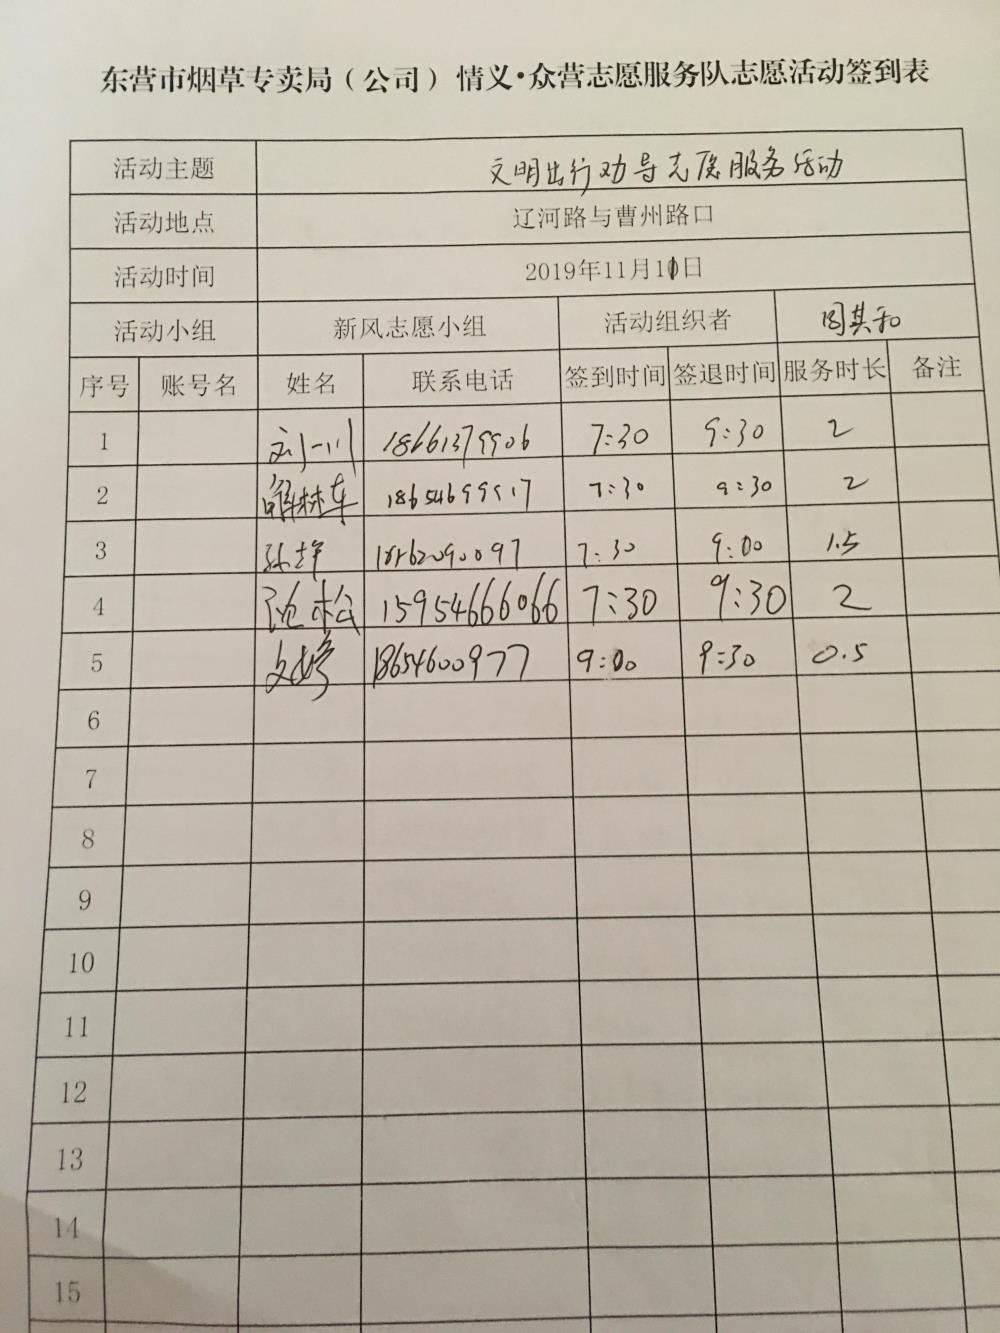 东营市烟草专卖局（公司）情义·众营志愿服务队志愿活动签到表
活动主题 文明出行劝导志愿服务活动
活动地点 辽河路与曹州路口
活动时间 2019年11月11日
活动小组 新风志愿小组 活动组织者 周其和
序号 账号名 姓名 联系电话 签到时间 签退时间 服务时长 备注
1 刘一川 18661379906 7:30 9:30 2
2 解林车 18654699917 7:30 9:30 2
3 7:30 9:00 1.5
4 15954666066 7:30 9:30 2
5 文婷 18654600977 9:00 9:30 0.5
6
7
8
9
10
11
12
13
14
15